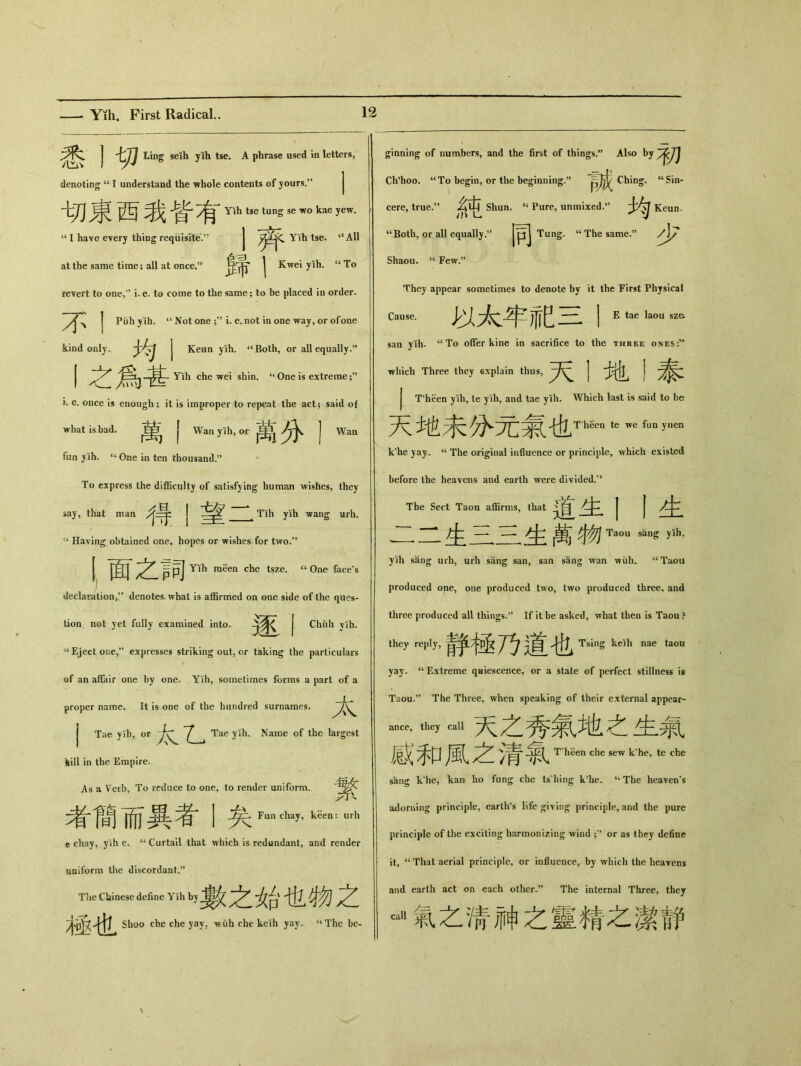 —— Yĭh. First Radical..
12
悉 | 切 Ling seĭh yĭh tse. A phrase used in letters,
denoting “ I understand the whole contents of yours.” |
切東西我皆有 Yĭh tse tung se wo kae yew.
“ I have every thing requisite.” | 齊 Yĭh tse. “All
at the same time; all at once.” 歸 | Kwei yĭh. “ To
revert to one,” i. e. to come to the same; to be placed in order.
不 | Pŭh yĭh. “ Not one ;” i. e. not in one way, or of one
kind only. 均 | Keun yĭh. “Both, or all equally.”
| 之爲甚 Yĭh che wei shin. “ One is extreme;”
i. e. once is enough; it is improper to repeat the act; said of
what is bad. 萬 | Wan yĭh, or 萬分 | Wan
fun yĭh. “ One in ten thousand.”
To express the difficulty of satisfying human wishes, they
say, that man 得 | 望二 Tĭh yĭh wang urh.
“ Having obtained one, hopes or wishes for two.”
| 面之詞 Yĭh mëen che tsze. “ One face's
declaration,” denotes what is affirmed on one side of the ques-
tion not yet fully examined into. 逐 | Chŭh yĭh.
“ Eject one,” expresses striking out, or taking the particulars
of an affair one by one. Yĭh, sometimes forms a part of a
proper name. It is one of the hundred surnames. 太
| Tae yĭh, or 太乙 Tae yĭh. Name of the largest
hill in the Empire.
As a Verb, To reduce to one, to render uniform. 繁
者簡而異者 | 矣 Fun chay, këen: urh
e chay, yĭh e. “ Curtail that which is redundant, and render
uniform the discordant.”
The Chinese define Yĭh by 數之始也物之
極也 Shoo che che yay, wŭh che keĭh yay. “ The be-
ginning of numbers, and the first of things.” Also by 初
Ch'hoo. “ To begin, or the beginning.” 誠 Ching. “ Sin-
cere, true.” 純 Shun. “ Pure, unmixed.” 均 Keun.
“Both, or all equally.” 同 Tung. “ The same.” 少
Shaou. “ Few.”
They appear sometimes to denote by it the First Physical
Cause. 以太牢祀三 | E tae laou sze
san yĭh. “ To offer kine in sacrifice to the THREE ONES:”
which Three they explain thus, 天 | 地 | 泰
| T'hëen yĭh, te yĭh, and tae yĭh. Which last is said to be
天地未分元氣也 T'hëen te we fun yuen
k'he yay. “ The original influence or principle, which existed
before the heavens and earth were divided.”
The Sect Taou affirms, that 道生 | | 生
二二生三三生萬物 Taou săng yĭh,
yĭh săng urh, urh săng san, san săng wan wŭh. “ Taou
produced one, one produced two, two produced three, and
three produced all things.” If it be asked, what then is Taou?
they reply, 静極乃道也 Tsing keĭh nae taou
yay. “ Extreme quiescence, or a state of perfect stillness is
Taou.” The Three, when speaking of their external appear-
ance, they call 天之秀氣地之生氣
感和風之清氣 T'hëen che sew k'he, te che
săng k'he, kan ho fung che ts'hing k'he. “ The heaven's
adorning principle, earth's life giving principle, and the pure
principle of the exciting harmonizing wind ;” or as they define
it, “ That aerial principle, or influence, by which the heavens
and earth act on each other.” The internal Three, they
call 氣之清神之靈精之潔静